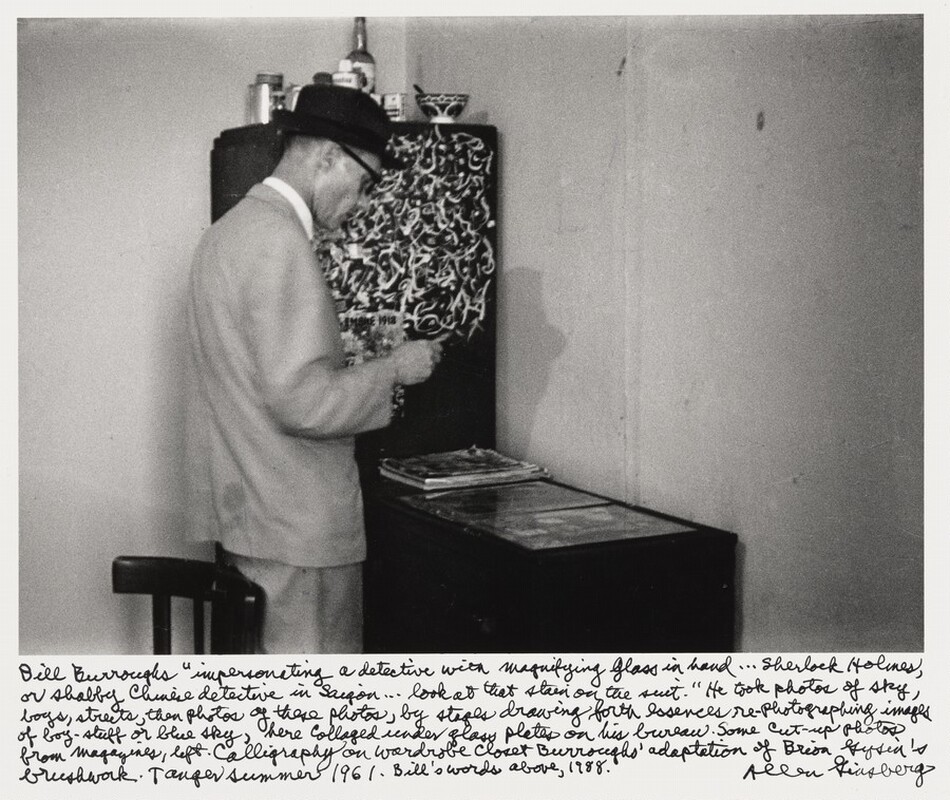 SMOKE 1918
Bill Burroughs "impersonating a detective with magnifying glass in hand ... Sherlock Holmes,
or shabby Chinese detective in Saigon ... look at that stain on the suit." He took photos of sky,
boys, streets, then photos of these photos, by stages drawing forth essences re-photographing images
of boy-stuff or blue sky, here collaged under glass plates on his bureau. Some Cut-up photos
from magazines, left. Calligraphy on wardrobe closet Burroughs' adaptation of Brion Gysin's
brushwork. Tanger summer 1961. Bill's words above, 1988.
Allen Ginsberg